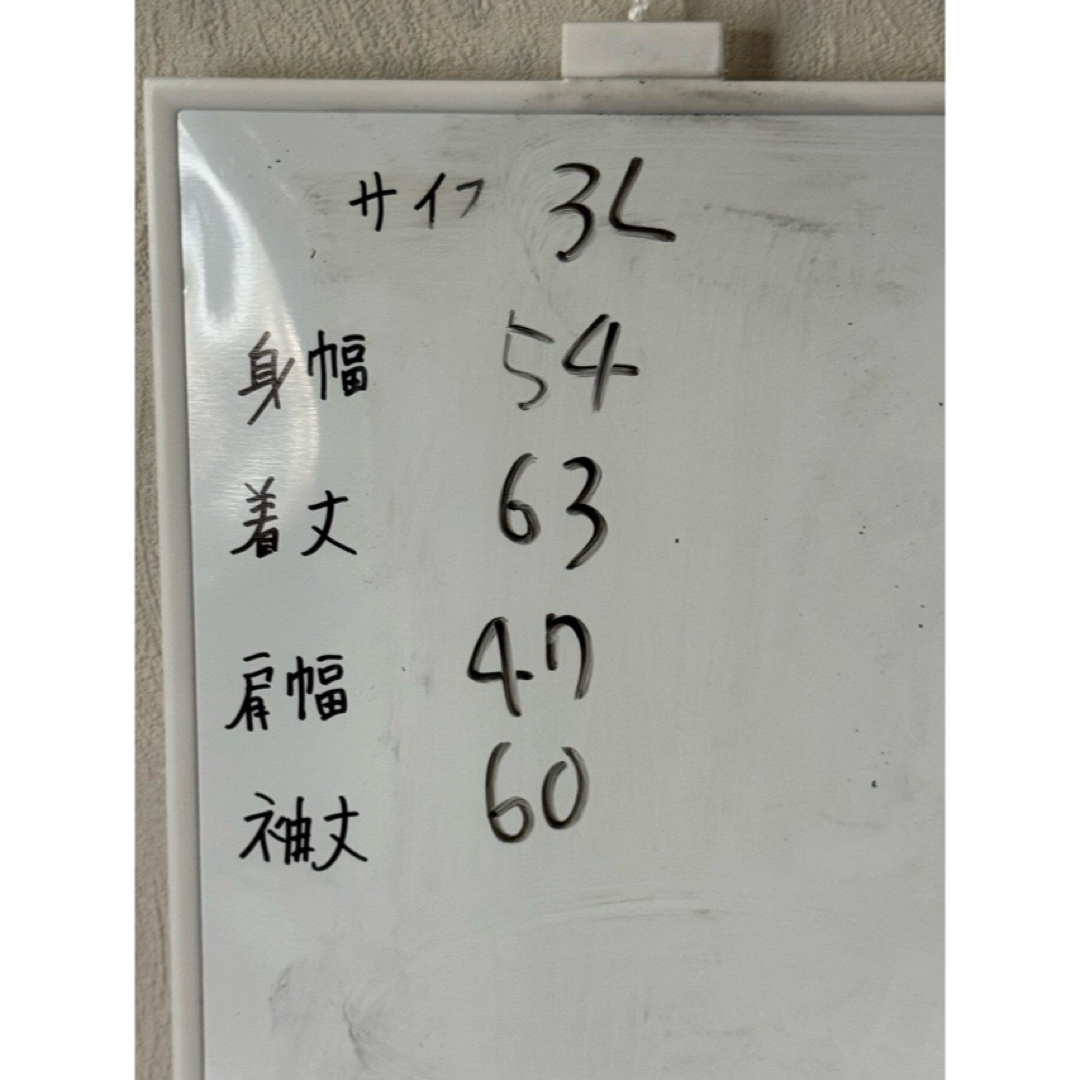 サイフ 3L
身幅 54
着丈 63
肩幅 47
袖丈 60